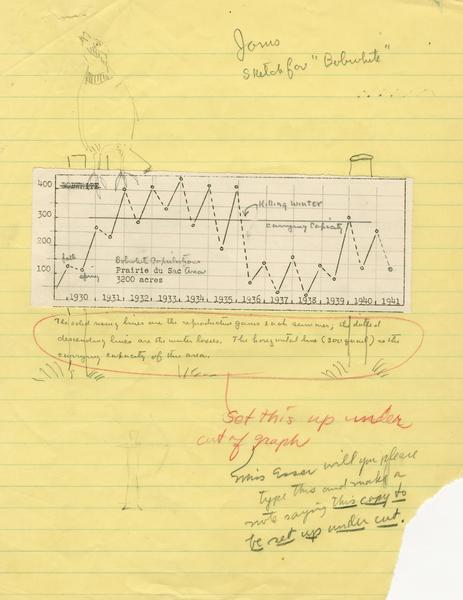 Sketch for "Bobwhite"
400
300
200
100
Killing Winter
Carrying Capacity
fall
spring
Bobwhite Population
Prairie du Sac Area
3200 acres
1930 1931 1932 1933 1934 1935 1936 1937 1938 1939 1940 1941
The solid rising lines are the reproductive gains each summer; the dotted
descending lines are the winter losses. The horizontal line (300 quail) is the
carrying capacity of this area.
Set this up under
cut of graph
Miss Esser will you please
type this and make a
note saying this copy to
be set up under cut.